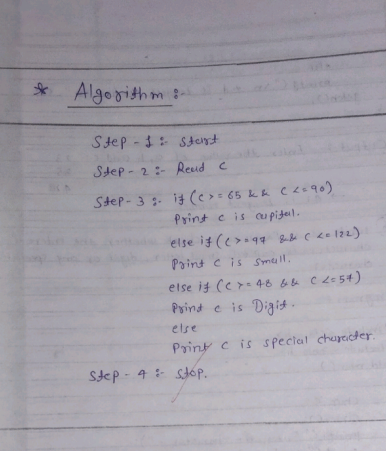 * Algorithm :-
Step - 1 :- Start
Step - 2 :- Read c
Step - 3 :- if (c >= 65 && c <= 90)
Print c is capital.
else if (c >= 97 && c <= 122)
Print c is small.
else if (c >= 48 && c <= 57)
Print c is Digit.
else
Print c is special character.
Step - 4 :- Stop.